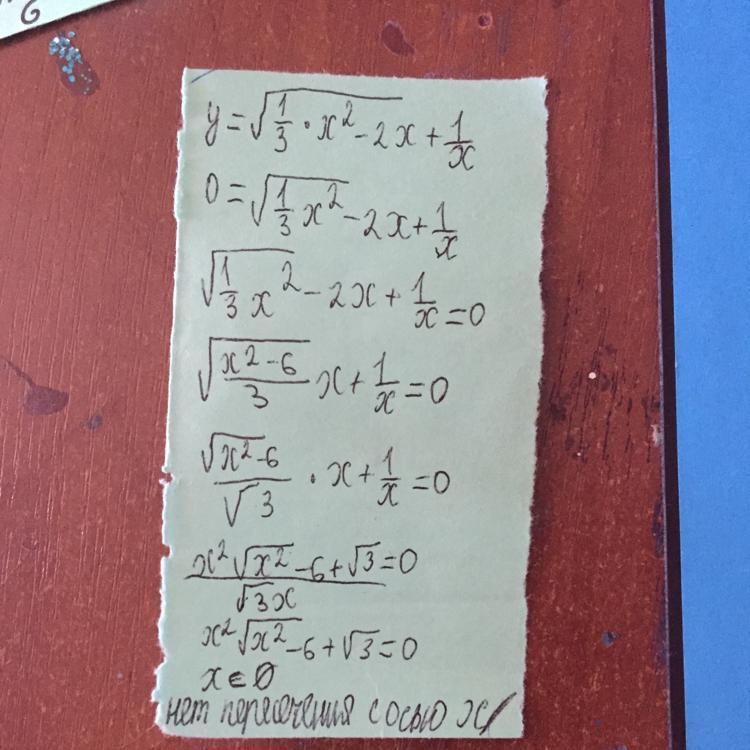 6
y = √(1/3 · x² - 2x) + 1/x
0 = √(1/3 x²) - 2x + 1/x
√(1/3 x²) - 2x + 1/x = 0
√((x² - 6)/3) x + 1/x = 0
(√(x²) - 6)/√3 · x + 1/x = 0
(x² √(x²) - 6 + √3 = 0)/(√3 x)
x² √(x²) - 6 + √3 = 0
x ∈ ∅
нет пересечения с осью x